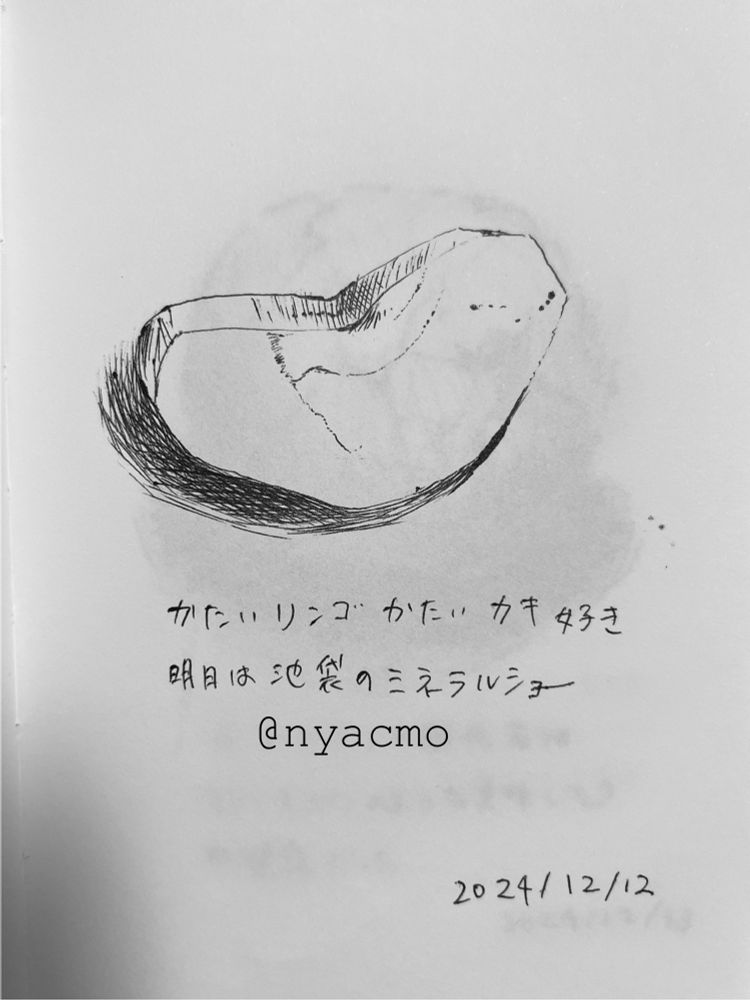 かたいリンゴ かたい カキ 好き
明日は 池袋のミネラルショー
@nyacmo
2024/12/12